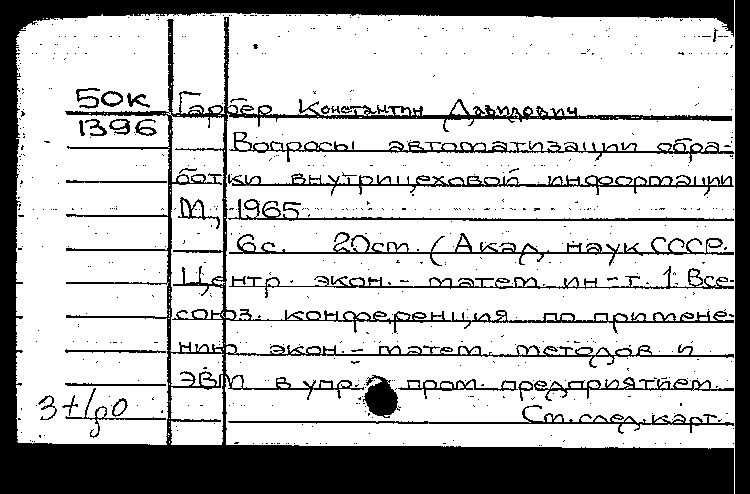 50К
1396
Гарбер, Константин Давидович
Вопросы автоматизации обра-
ботки внутрицеховой информации
М., 1965.
6с. 20см. (Акад. наук СССР.
Центр. экон.- матем. ин-т. 1. Все-
союз. конференция по примене-
нию экон.- матем. методов и
ЭВМ в упр. пром. предприятием
См. след. карт.